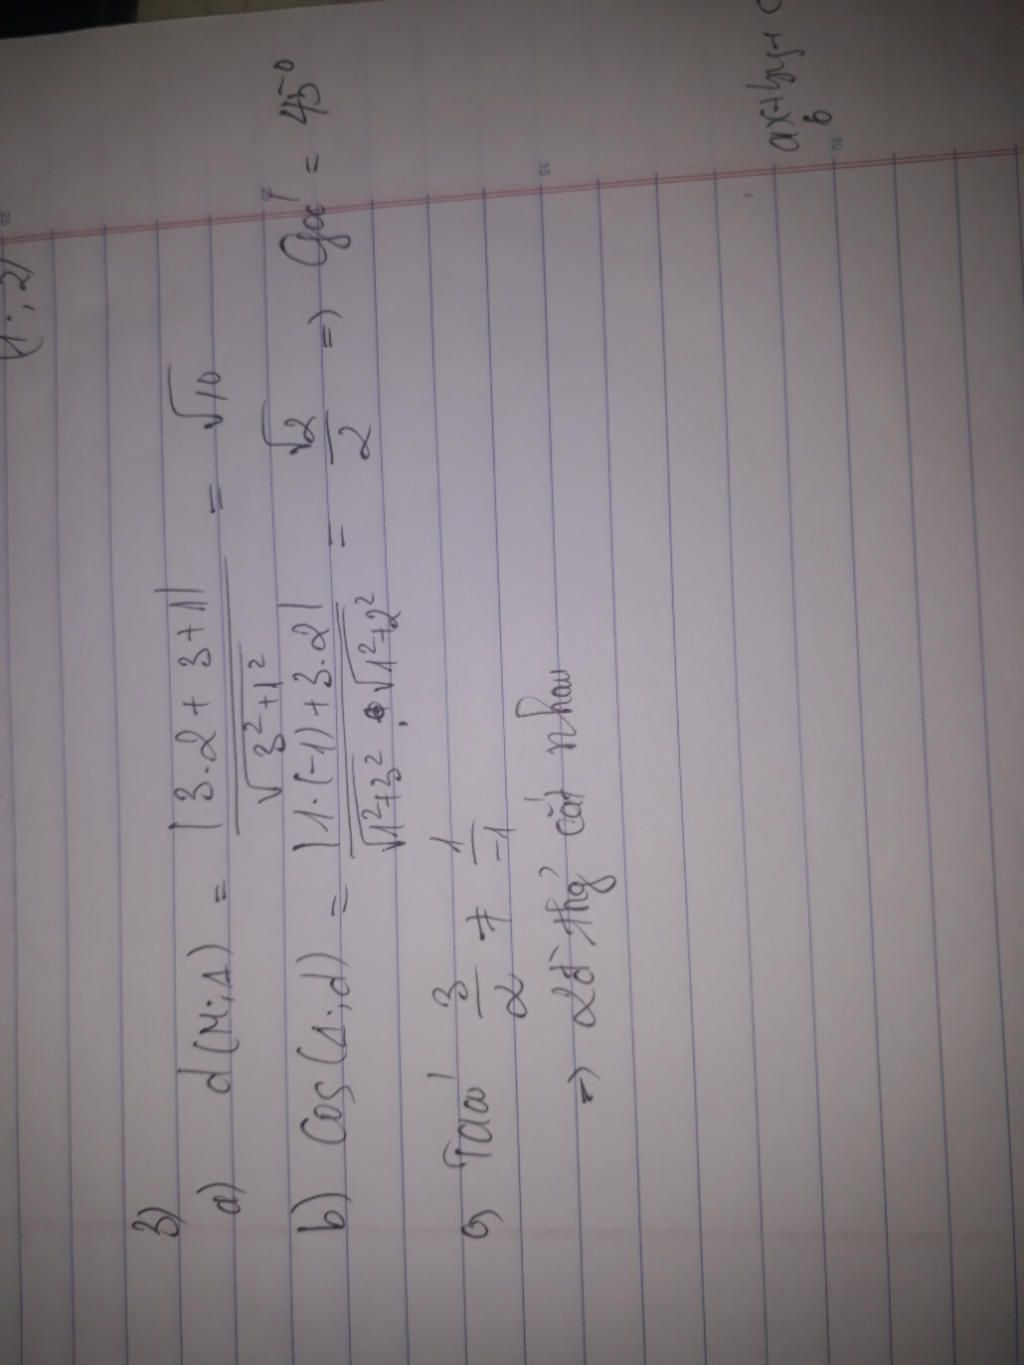 (1; 2)
3)
a) d(M; Δ) = |3.2 + 3 + 1| / √3²+1² = √10
b) Cos(Δ; d) = |1.(-1) + 3.2| / √1²+3² . √1²+2² = √2 / 2 => Góc = 45°
c) Ta có 3/2 ≠ 1/-1
=> 2 đ thg cắt nhau
ax+by+c
b
25
15
10